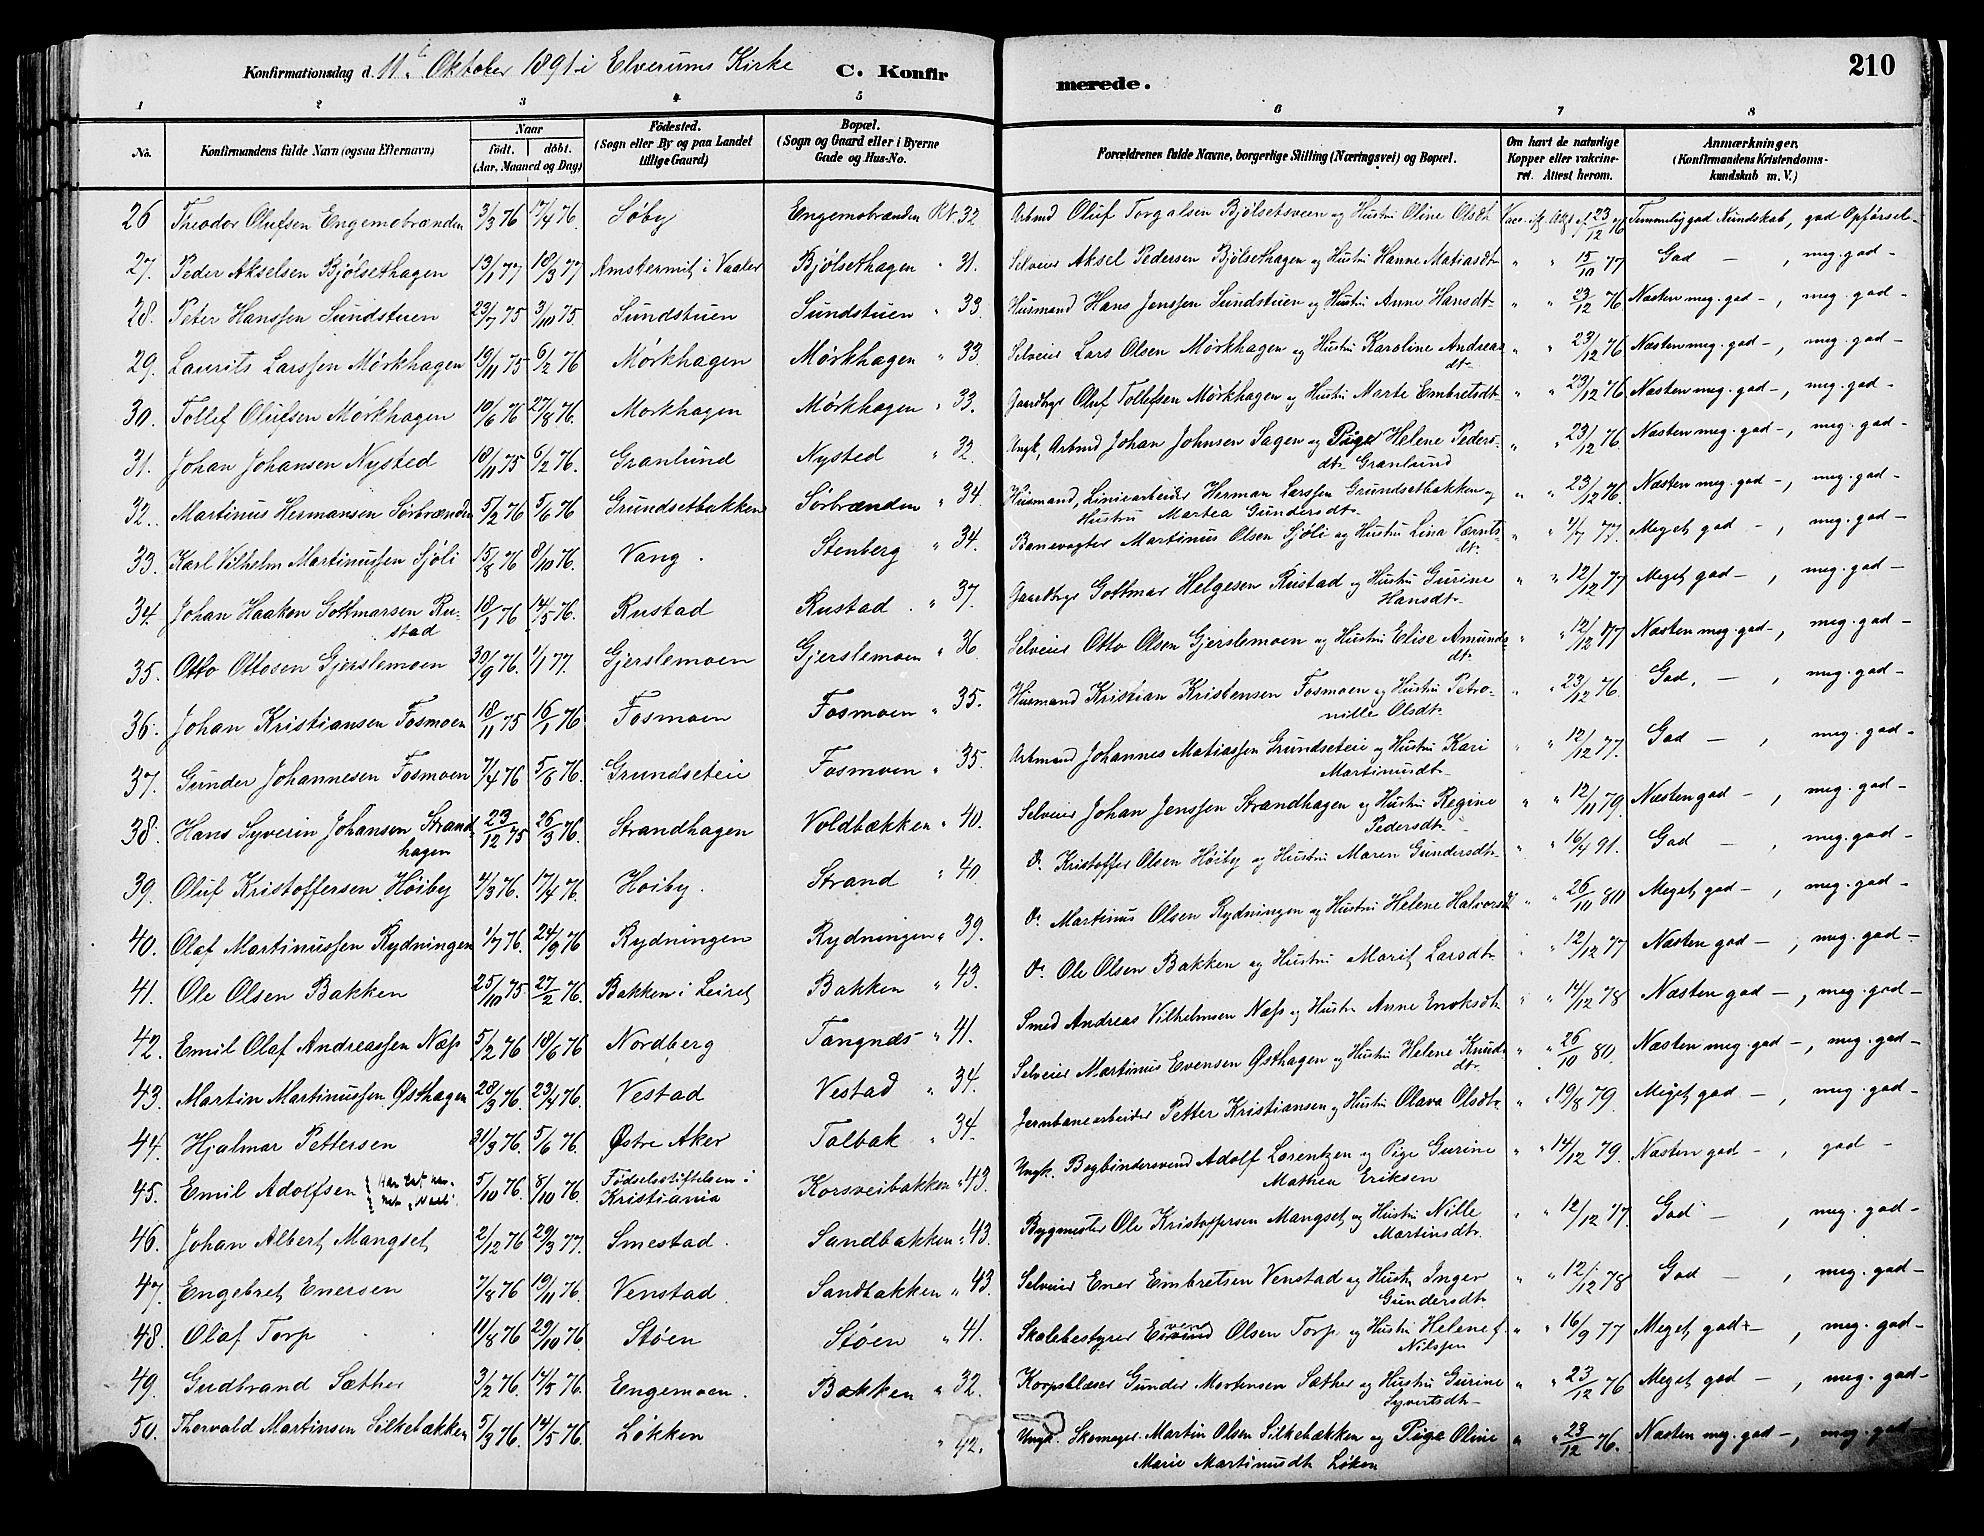 Konfirmationsdag d. 11te Oktober 1891 i Elverums Kirke C. Konfir merede. 210
1 2 3 4 5 6 7 8
No. Konfirmandens fulde Navn (ogsaa Efternavn) Naar födt. döbt. (Aar, Maaned og Dag) Födested. (Sogn eller By og paa Landet tillige Gaard) Bopæl. (Sogn og Gaard eller i Byerne Gade og Hus-No.
Forældrenes fulde Navne, borgerlige Stilling (Næringsvei) og Bopæl. Om havt de naturlige Kopper eller vakcineret. Attest herom. Anmærkninger. (Konfirmandens Kristendomskundskab m. V.)
26 Theodor Olufsen Engemobrænden 3/3 76 17/4 76. Söby Engemobrænden Kr. 32. Arbmd Oluf Torgalsen Bjölsetsveen og Hustru Oline Olsdt 23/12 76 Temmelig god Kundskab, god Opförsel-
27. Peder Akselsen Bjölsethagen 13/1 77 18/3 77 i Vaaler Bjölsethagen " 31. Selveier Aksel Pedersen Bjölsethagen og Hustru Hanne Matiasdt " " 15/10 77 God - , meg. god-
28. Peter Hanssen Sundstuen 23/7 75 3/10 75. Sundstuen Sundstuen " 33. Husmand Hans Jenssen Sundstuen og Hustru Anne Hansdt " " 23/12 76 Næsten meg. god-, meg. god-
29. Laurits Larssen Mörkhagen 19/11 75 6/2 76 Mörkhagen Mörkhagen " 33. Selveier Lars Olsen Mörkhagen og Hustru Karoline Andreas dt " " 23/12 76 Næsten meg. god-, meg. god-
30. Tollef Olufsen Mörkhagen 10/6 76 27/8 76. Morkhagen Mörkhagen " 33. Gaardbrgr Oluf Tollefsen Mörkhagen og Hustru Marte Embretsdt " " 23/12 76 Næsten meg. god-, meg. god-
31. Johan Johansen Nysted 18/11 75 6/2 76. Granlund Nysted " 32. Ungk, Arbmd Johan Johnsen Sagen og Pige Helene Peders dt. Granlund " " 23/12 76. Næsten meg. god-, meg. god-
32. Martinus Hermansen Sörbrænden 5/2 76 5/6 76 Grundsetbakken Sörbrænden " 34. Husmand, Liniearbeider Herman Larssen Grundsetbakken og Hustru Martea Gundersdt. " " 23/12 76. Næsten meg. god-, meg. god-
33. Karl Vilhelm Martinussen Sjöli 15/8 76 8/10 76. Vang. Stenberg " 34. Banevogter Martinus Olsen Sjöli og Hustru Lina Værnts dt. " " 4/7 77. Meget god-, meg. god-
34. Johan Haaken Gottmarsen Rustad 18/1 76 14/5 76. Rustad Rustad. " 37. Gaardbrgr Gottmar Helgesen Rustad og Hustru Gurine Hansdt. " " 12/12 77 Meget god-, meg. god-
35. Otto Ottosen Gjerslemoen 30/9 76. 1/1 77. Gjerslemoen Gjerslemoen " 36. Selveier Otto Olsen Gjerslemoen og Hustru Elise Amunds dt. " " 12/12 77 Næsten meg. god-, meg. god-
36. Johan Kristiansen Fosmoen 18/11 75 16/1 76. Fosmoen Fosmoen " 35. Husmand Kristian Kristensen Fosmoen og Hustru Petronille Olsdt. " " 23/12 76. God. - , meg. god-
37. Gunder Johannesen Fosmoen 7/4 76 5/8 76. Grundseteie Fosmoen " 35. Arbmand Johannes Matiassen Grundseteie og Hustru Kari Martinusdt. " " 12/12 77. God - , meg. god-
38. Hans Syverin Johansen Strandhagen 23/12 75 26/3 76. Strandhagen Voldbækken " 40. Selveier Johan Jenssen Strandhagen og Hustru Regine Pedersdt. " " 12/11 79. Næsten god-, meg. god-
39. Oluf Kristoffersen Höiby 4/3 76. 17/4 76. Hoiby. Strand " 40. Do. Kristoffer Olsen Höiby og Hustru Maren Gundersdt " " 16/4 91. God - , meg. god-
40. Olaf Martinussen Rydningen 1/7 76. 24/9 76 Rydningen Rydningen " 39. Do. Martinus Olsen Rydningen og Hustru Helene Halvorsdt " " 26/10 80 Meget god-, meg. god-
41. Ole Olsen Bakken 25/10 75 27/2 76. Bakken i Leiret Bakken " 43. Do. Ole Olsen Bakken og Hustru Marit Larsdt " " 12/12 77 Næsten god-, meg. god-
42. Emil Olaf Andreassen Næss 5/2 76 18/6 76 Nordberg Tangnds " 41. Smed Andreas Vilhelmsen Næss og Hustru Anne Enoksdt. " " 14/12 78 Næsten god-, meg. god-
43. Martin Martinussen Østhagen 28/3 76. 23/4 76. Vestad Vestad " 34. Selveier Martinus Evensen Østhagen og Hustru Helene Knuds dt. " " 26/10 80. Næsten meg. god-, meg. god-
44. Hjalmar Pettersen 31/3 76. 5/6 76. Østre Aker Tolbak " 34. Jernbanearbeider Petter Kristiansen og Hustru Olava Olsdt " " 19/8 79. Meget god-, meg. god-
45. Emil Adolfsen 5/10 76. 8/10 76. Födselsstiftelsen i Kristiania Korsveibakken " 43. Ungk. Bogbindersvend Adolf Lorentzen og Pige Gurine Mathea Eriksen " " 14/12 79. Næsten god-, god-
46. Johan Albert Mangset 2/12 76 29/3 77. Smestad. Sandbakken " 43. Bygmester Ole Kristoffersen Mangset og Hustru Nille Martinsdt. " " 12/12 77. God - , meg. god-
47. Engebret Enersen 7/8 76 19/11 76. Venstad. Sandbakken " 43. Selveier Ener Embretsen Venstad og Hustru Inger Gundersdt. " " 12/12 78 God - , meg. god-
48. Olaf Torp 11/8 76 29/10 76 Støen Støen " 41. Skolebestyrer Olsen Torp og Hustru Helene f. Nilssen " " 16/9 77 Meget god-, meg. god-
49. Gudbrand Sæther 3/2 76. 14/5 76. Engemoen. Bakken " 32. Korpsblæser Gunder Mortensen Sæther og Hustru Gurine Syvertsdt. " " 23/12 76 Meget god-, meg. god-
50. Thorvald Martinsen Silkebækken 5/3 76. 14/5 76. Løkken " 42. Ungk. Skomager Martin Olsen Silkebækken og Pige Oline Marie Martinusdt Løken " " 23/12 76. Næsten meg. god-, meg. god